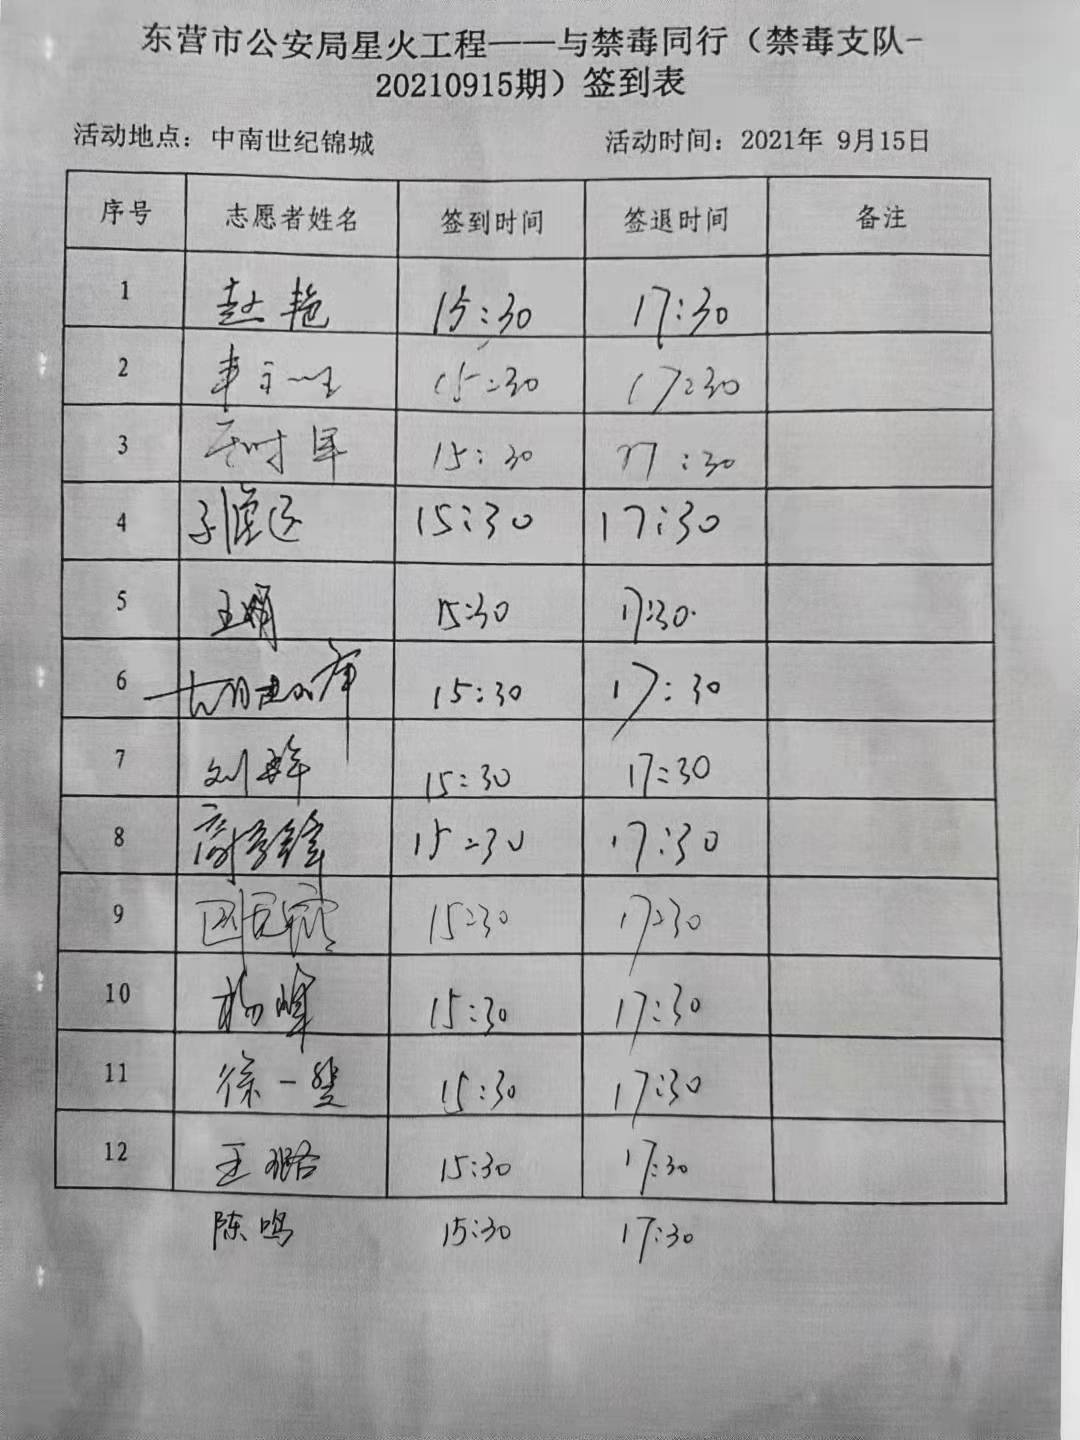 东营市公安局星火工程——与禁毒同行（禁毒支队-
20210915期）签到表
活动地点：中南世纪锦城 活动时间：2021年 9月15日
序号 志愿者姓名 签到时间 签退时间 备注
1 赵艳 15:30 17:30
2 15:30 17:30
3 15:30 17:30
4 15:30 17:30
5 王娟 15:30 17:30
6 15:30 17:30
7 刘 15:30 17:30
8 15:30 17:30
9 15:30 17:30
10 杨峰 15:30 17:30
11 徐一斐 15:30 17:30
12 王璐 15:30 17:30
陈鸣 15:30 17:30